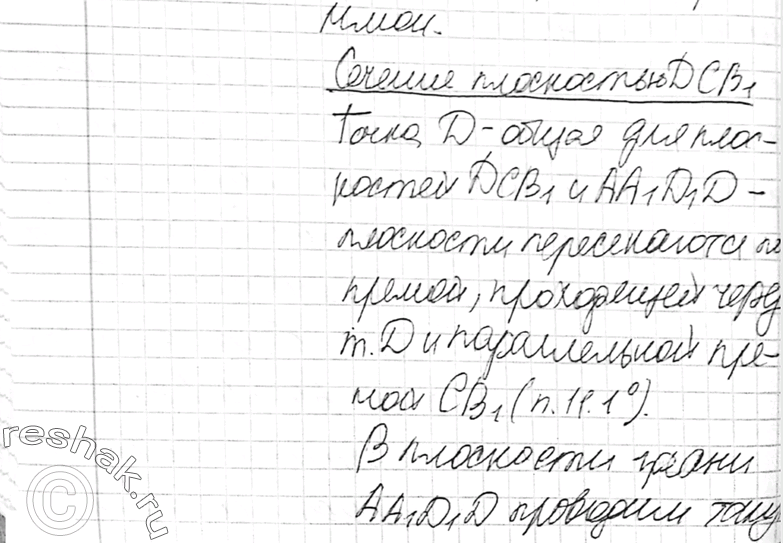 ммой.
Сечение плоскостью DCB₁
Точка D - общая для плос-
костей DCB₁ и AA₁D₁D -
плоскости пересекаются по
прямой, проходящей через
т. D и параллельной пря-
мой CB₁ (п. 11.1°).
В плоскости грани
AA₁D₁D проводим таку
reshak.ru